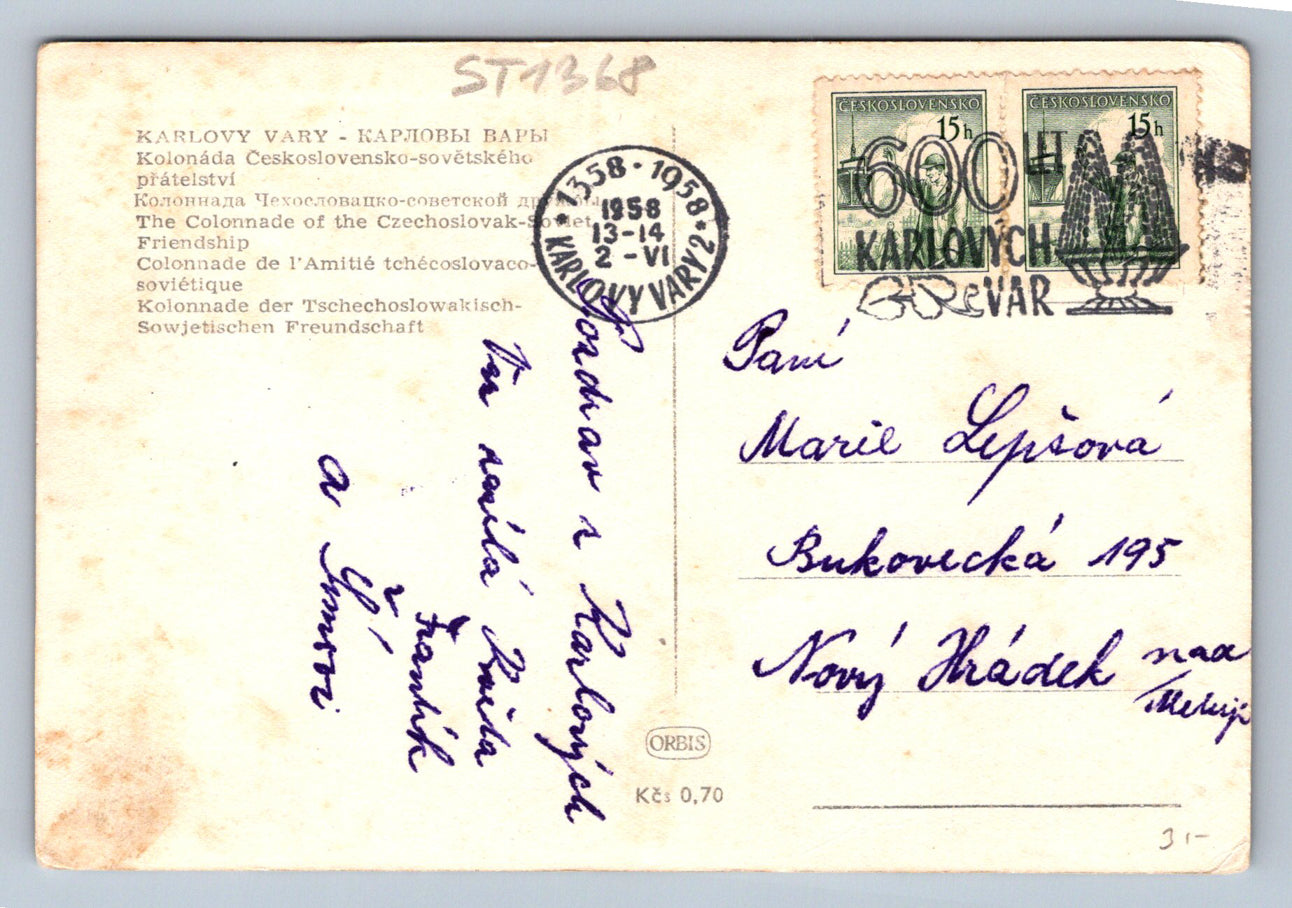 ST1368
KARLOVY VARY - КАРЛОВЫ ВАРЫ
Kolonáda Československo-sovětského
přátelství
Колоннада Чехословацко-советской дружбы
The Colonnade of the Czechoslovak-Soviet
Friendship
Colonnade de l'Amitié tchécoslovaco-
soviétique
Kolonnade der Tschechoslowakisch-
Sowjetischen Freundschaft
1358 - 1958
1958
13-14
2 - VI
KARLOVY VARY 2
ČESKOSLOVENSKO
15h
ČESKOSLOVENSKO
15h
600 LET
KARLOVÝCH
VAR
Pozdrav z Karlových
František
a
Paní
Marie Lepšová
Bukovecká 195
Nový Hrádek nad
Metují
ORBIS
Kčs 0,70
3,-